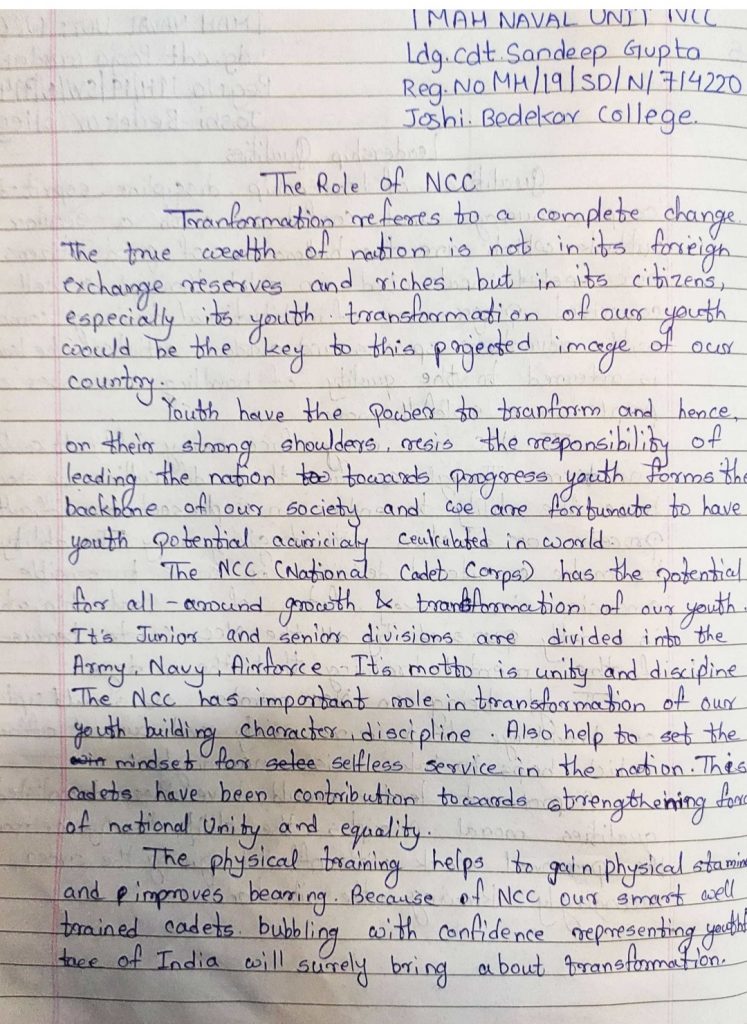 1 MAH NAVAL UNIT NCC
Ldg.Cdt. Sandeep Gupta
Reg. No MH/19/SD/N/714220
Joshi. Bedekar College.
The Role of NCC
Tranformation referes to a complete change.
The true wealth of nation is not in its forieign
exchange reserves and riches, but in its citizens,
especially its youth. transformation of our youth
could be the key to this projected image of our
country.
Youth have the power to tranform and hence,
on their strong shoulders, resis the responsibility of
leading the nation too towards progress youth forms the
backbone of our society and we are fortunate to have
youth potential in world
The NCC. (National Cadet Corps) has the potential
for all - around growth & transformation of our youth.
It's Junior and senior divisions are divided into the
Army, Navy, Airforce It's motto is unity and discipine
The NCC has important role in transformation of our
youth building character, discipline. Also help to set the
mindset for selee selfless service in the nation. This
cadets have been contribution towards strengthening forc
of national Unity and equality.
The physical training helps to gain physical stamin
and improves bearing. Because of NCC our smart well
trained cadets. bubbling with confidence representing youth
face of India will surely bring about transformation.